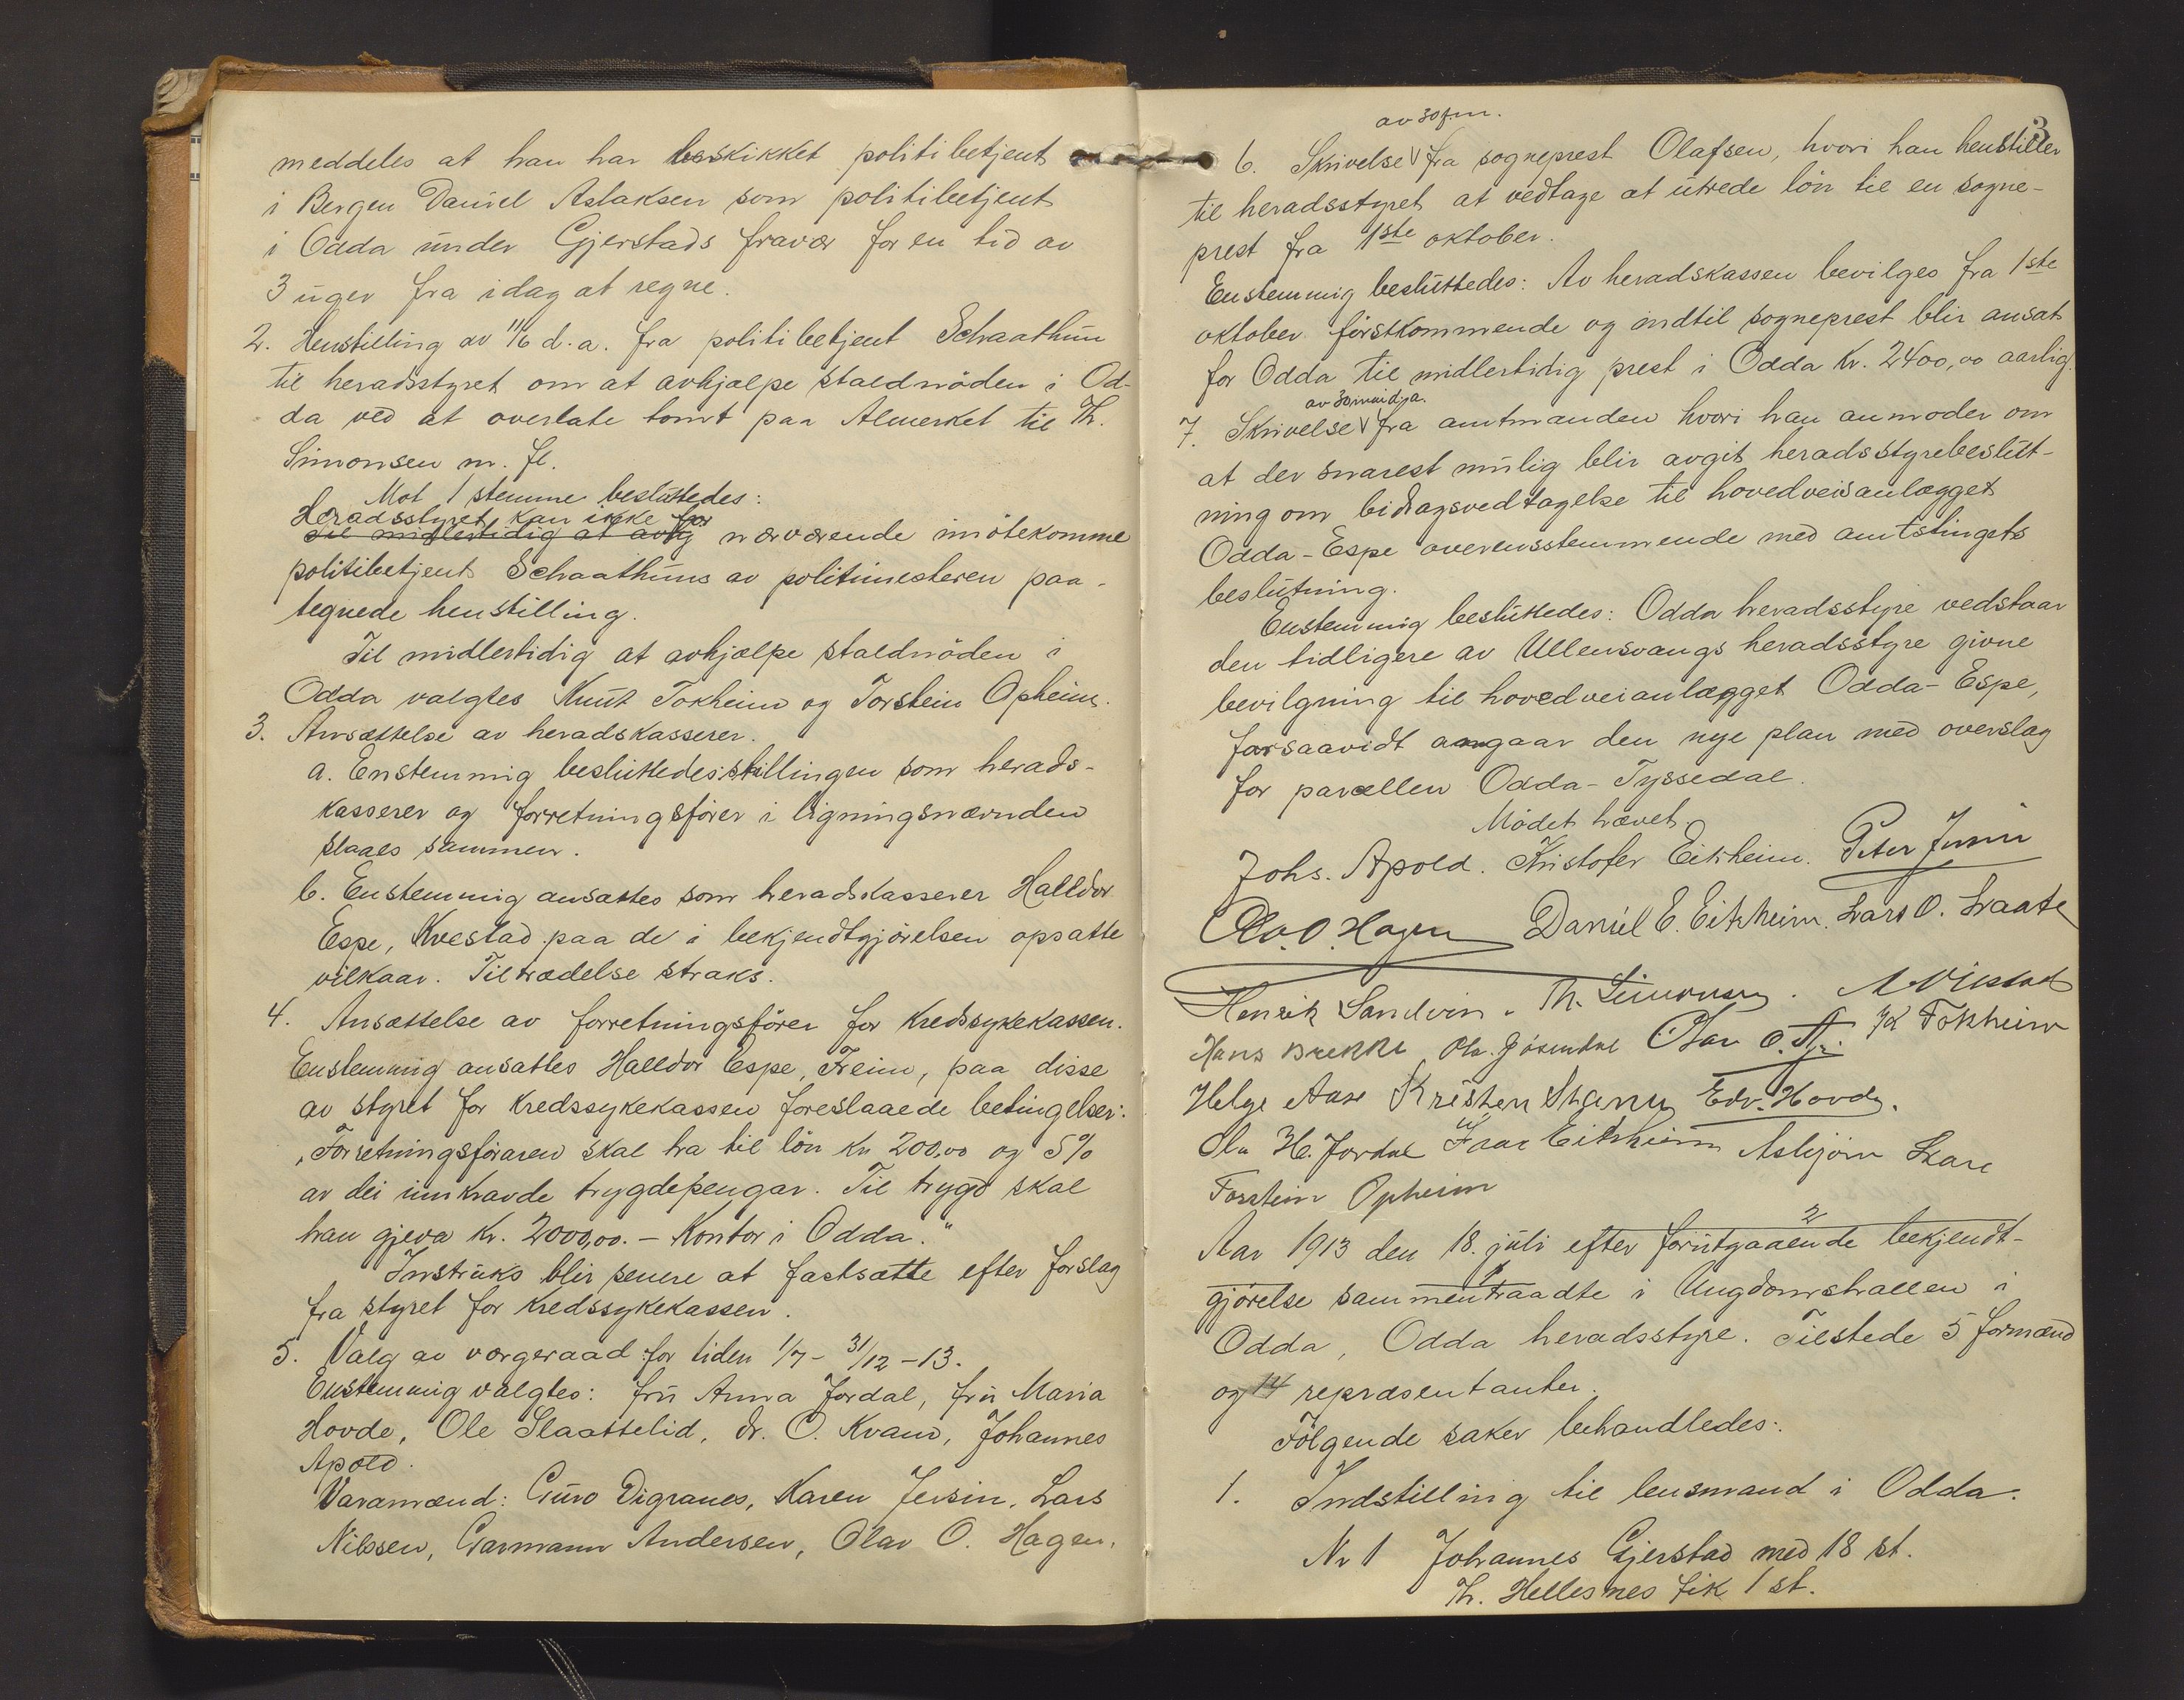 meddeles at han har beskikket politibetjent
i Bergen Daniel Aslaksen som politibetjent
i Odda under Gjerstads fravær for en tid av
3 uger fra idag at regne.
2. Henstilling av 11/6 d.a. fra politibetjent Schaathun
til heradsstyret om at avhjælpe staldnöden i Od-
da ved at overlate tomt paa Almerket til Th.
Simonsen m. fl.
Mot 1 stemme besluttedes:
Heradsstyret kan ikke for
Til midlertidig at avhj nærværende imötekomme
politibetjent Schaathuns av politimesteren paa-
tegnede henstilling.
Til midlertidig at avhjælpe staldnöden i
Odda valgtes Knut Tokheim og Torstein Opheim.
3. Ansættelse av heradskasserer.
a. Enstemmig besluttedes: stillingen som herads-
kasserer og forretningsförer i ligningsnævnden
slaaes sammen.
b. Enstemmig ansattes som heradskasserer Halldor
Espe, Kvestad paa de i bekjendtgjörelsen opsatte
vilkaar. Tiltrædelse straks.
4. Ansættelse av forretningsförer for Kredssykekassen.
Enstemmig ansattes Halldor Espe, Freim, paa disse
av styret for Kredssykekassen foreslaaede betingelser:
"Forretningsföraren skal ha til lön kr 200,00 og 5%
av dei innkravde trygdepengar. Til trygd skal
han gjeva Kr. 2000,00. - Kontor i Odda."
Instruks blir senere at fastsætte efter forslag
fra styret for Kredssykekassen.
5. Valg av værgeraad for tiden 1/7 - 31/12 - 13.
Enstemmig valgtes: fru Anna Jordal, fru Maria
Hovde, Ole Slaattelid, dr. O. Kvam, Johannes
Apold.
Varamænd: Guro Digranes, Karen Jersin, Lars
Nilssen, Garmann Andersen, Olav O. Hagen.
3
av 30 f.m.
6. Skrivelse fra sogneprest Olafsen, hvori han henstiller
til heradsstyret at vedtage at utrede lön til en sogne-
prest fra 1ste oktober.
Enstemmig besluttedes: Av heradskassen bevilges fra 1ste
oktober förstkommende og indtil sogneprest blir ansat
for Odda til midlertidig prest i Odda kr. 2400,00 aarlig.
av 30 mai d.a.
7. Skrivelse fra amtmanden hvori han anmoder om
at der snarest mulig blir avgit heradsstyrebeslut-
ning om bidragsvedtagelse til hovedveisanlægget
Odda-Espe overensstemmende med amtstingets
beslutning.
Enstemmig besluttedes: Odda heradsstyre vedstaar
den tidligere av Ullensvangs heradsstyre givne
bevilgning til hovedveianlægget Odda-Espe,
forsaavidt angaar den nye plan med overslag
for parcellen Odda-Tyssedal.
Mödet hævet.
Johs. Apold. Kristofer Eitrheim. Peter Jersin
Ola. O. Hagen Daniel E. Eitrheim. Lars O. Laate
Henrik Sandvin. Th. Simonsen.
Hans Brekke Ola. Jösendal Olav O. K Tokheim
Helge Aase Kristen Edv. Hovde.
Ola H. Jordal Ivar Eitrheim Asbjörn Skare
Torstein Opheim
2
Aar 1913 den 18. juli efter forutgaaende bekjendt-
gjörelse sammentraadte i Ungdomshallen i
Odda, Odda heradsstyre. Tilstede 5 formænd
og 14 repræsentanter.
Fölgende saker behandledes:
1. Indstilling til lensmand i Odda.
Nr 1 Johannes Gjerstad med 18 st.
Th. Hellesnes fik 1 st.